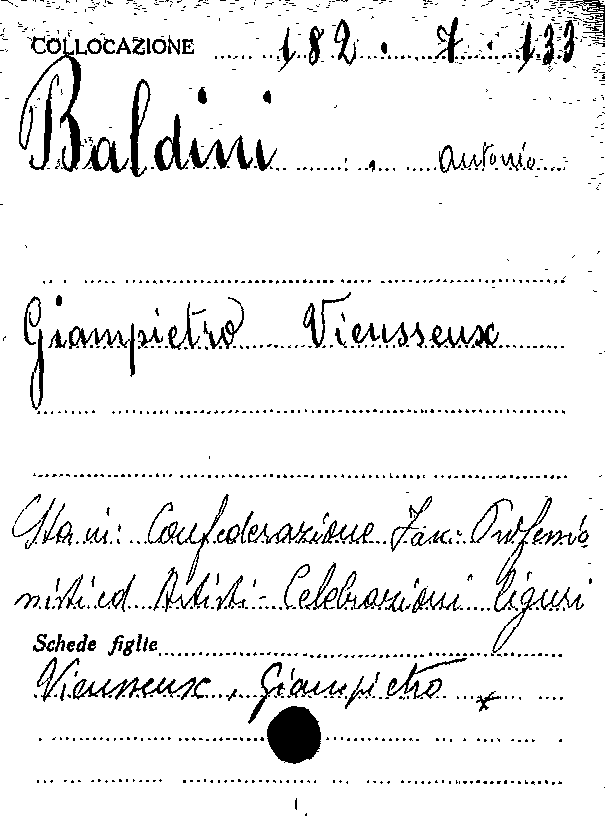 COLLOCAZIONE 182. 7. 133
Baldini, Antonio
Giampietro Vieusseux
Sta in: Confederazione Fasc: Professio
nisti ed Artisti - Celebrazioni liguri
Schede figlie
Vieusseux, Giampietro x